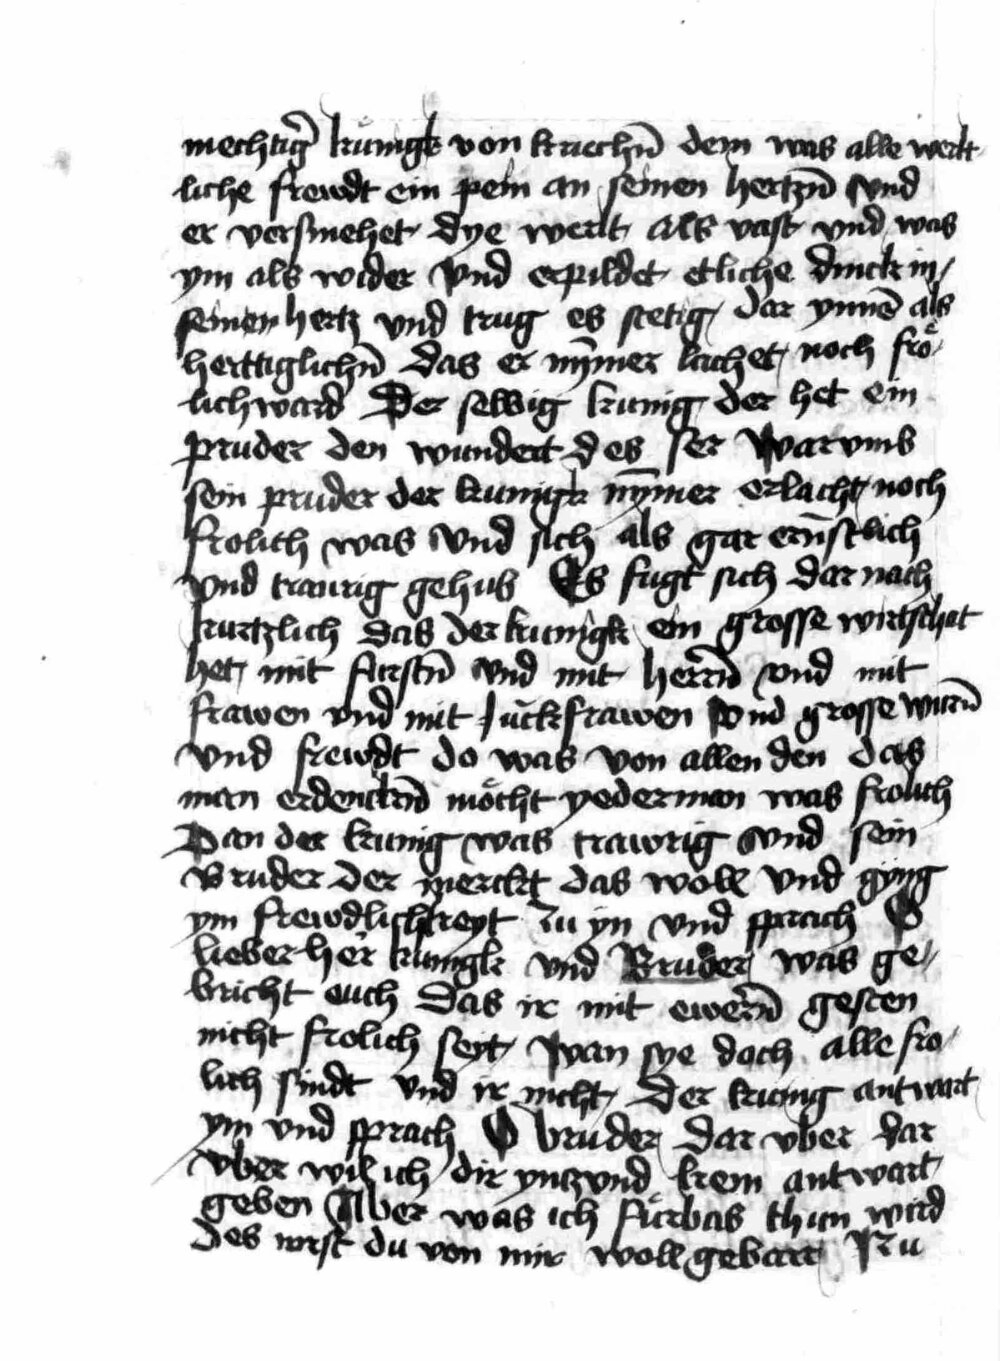 mechtig̃ kunigk von kriechñ dem was alle werlt
liche frewdt ein pein an seinen hertzñ vnd
er versmehet dye werlt als vast vnd was
ym als wider Vnd erpildet etliche dinck in
seinen hertz vnd trug es stetig dar ynnẽ als
herttiglichñ das er nȳmer lachet noch frö
lich ward Der selbig kunig der het ein
pruder den wundert des ser Warvmb
sein pruder der kunigk nȳmer erlacht noch
frolich was Vnd sich als gar ernstlich
vnd traurig gehub Es fugt sich dar nach
kurtzlich das der kunigk ein grosse wirtschat
het mit furstñ vnd mit herrñ vnd mit
frawen vnd mit Juckfrawen Vnd grosse
vnd frewdt do was von allen den das
man erdenckñ möcht yederman was frolich
Dan der kunig was trawrig vnd sein
bruder der merckt das woll vnd gÿng
ym frewdlichkeyt zu yn vnd sprach O
lieber her kunigk vnd Bruder was ge
bricht euch das ir mit ewerñ gesten
nicht frolich seyt Wan sye doch alle fro
lich sindt vnd ir nicht Der kunig antwart
ym vnd sprach O bruder dar vber dar
vber wil ich dir yntzund kein antwart
geben Aber was ich fürbas thun wird
des wirst du von mir woll gebart Nu